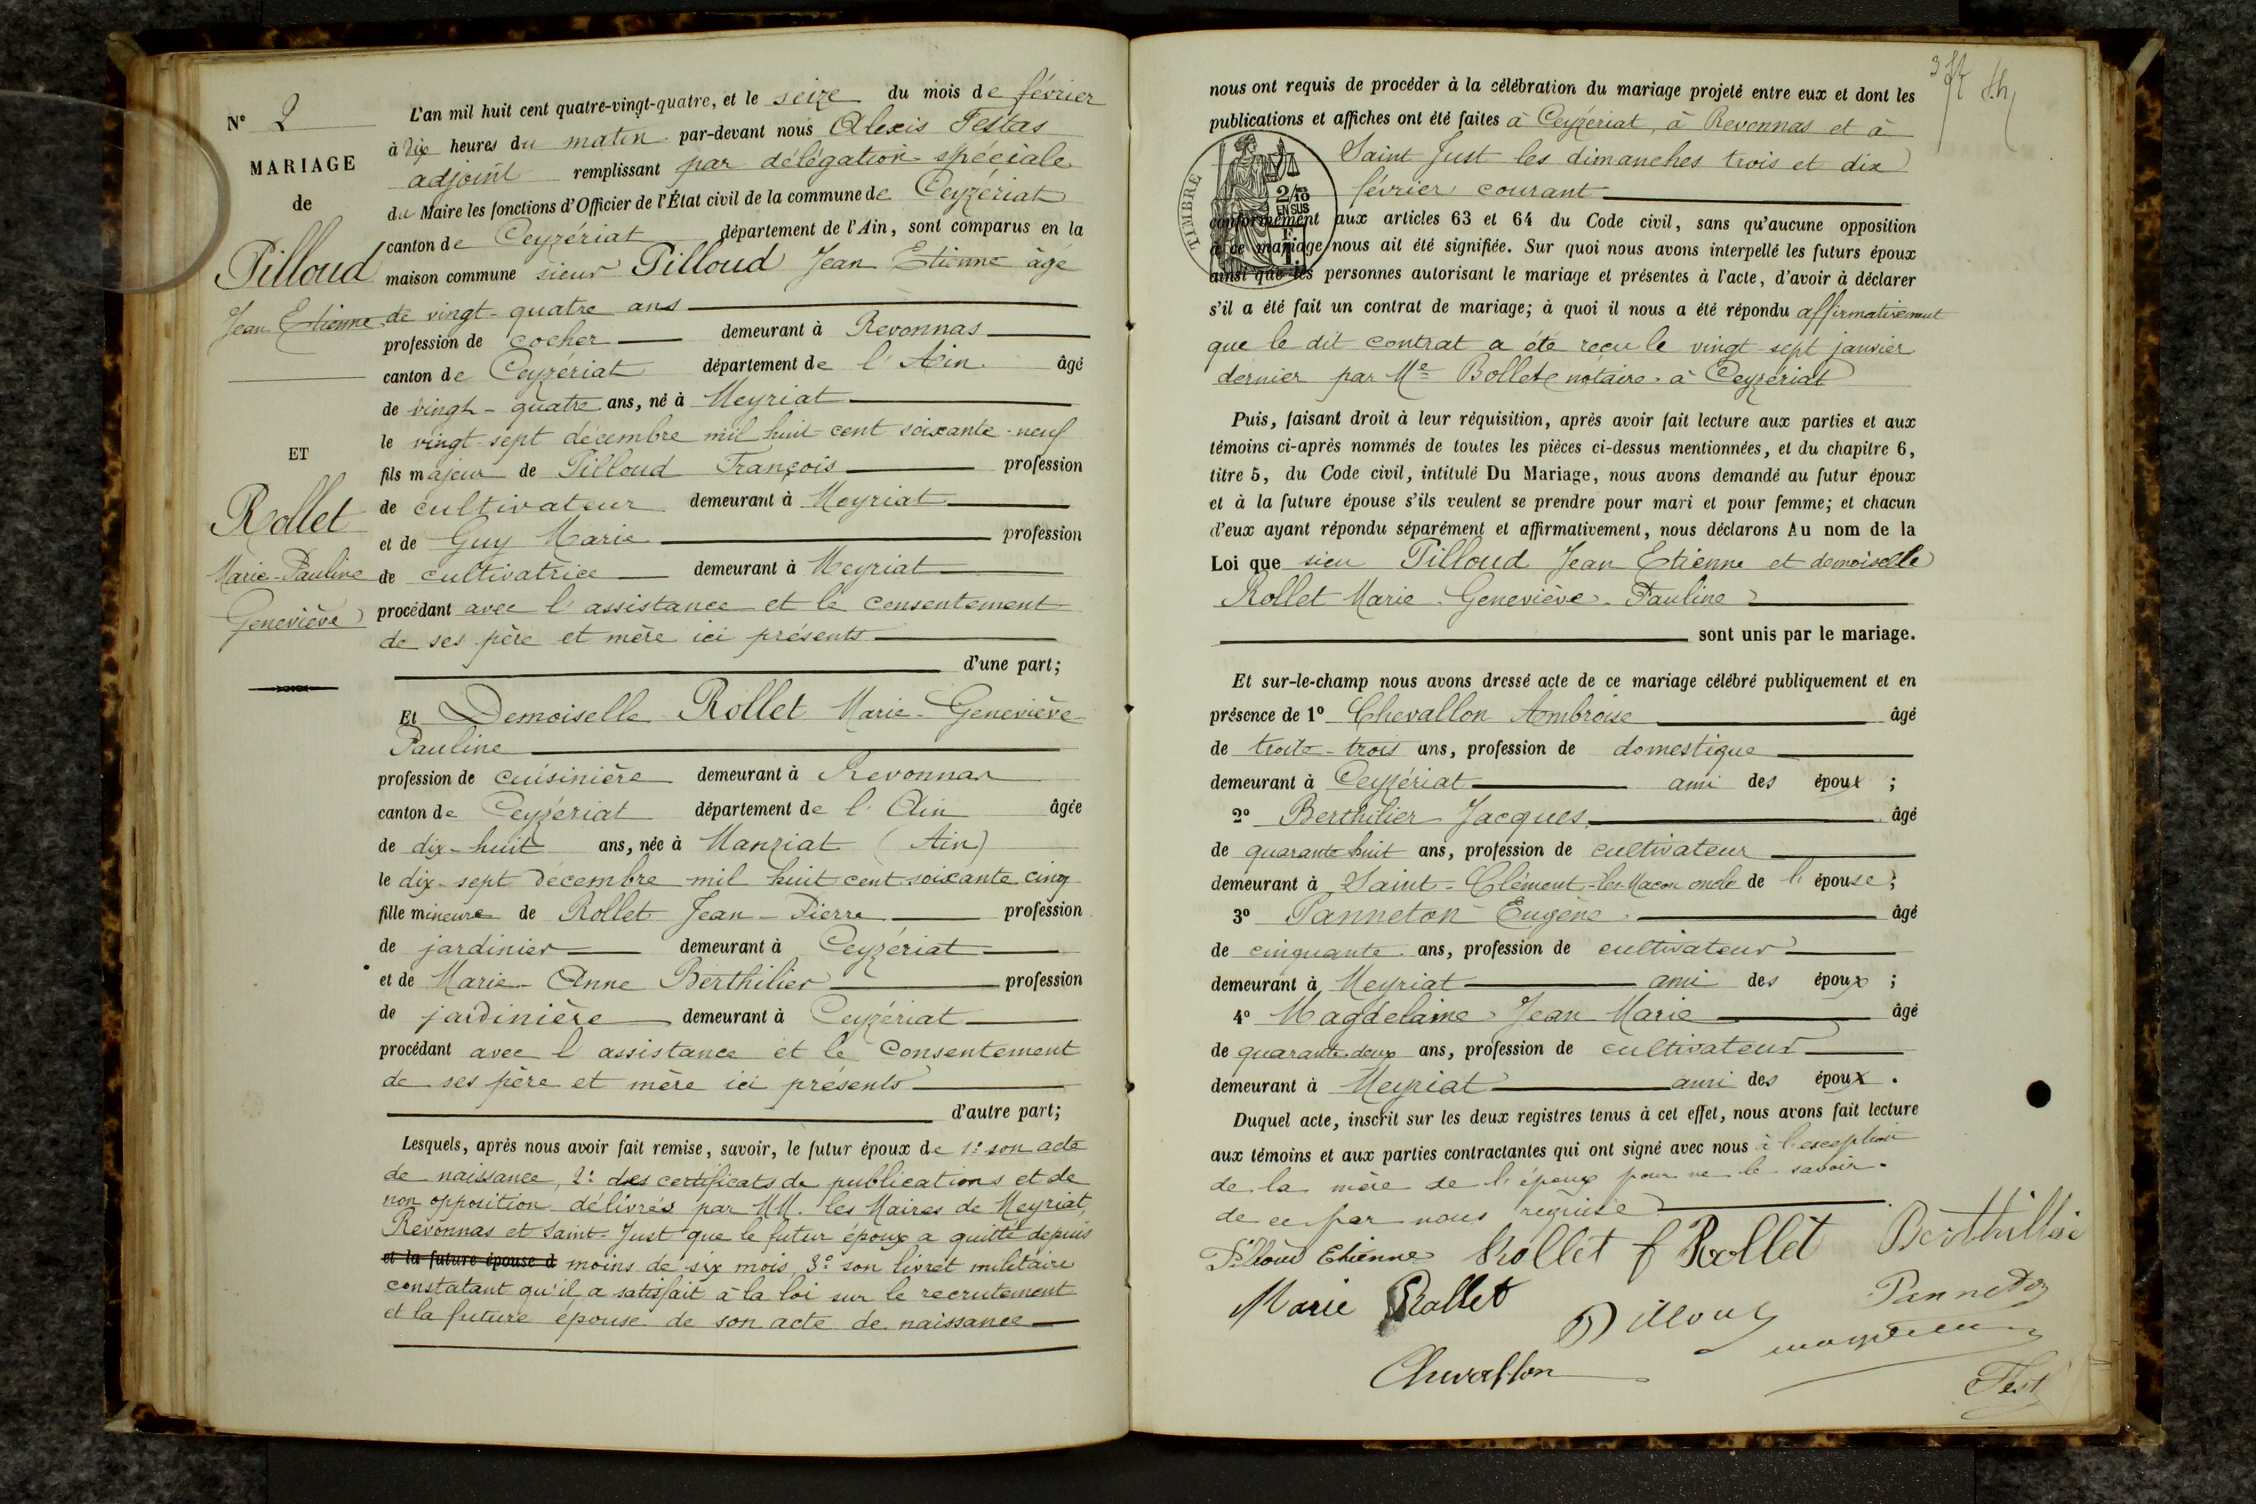 N° 2
MARIAGE
de
Pilloud
Jean Etienne
ET
Rollet
Marie-Pauline
Geneviève
L'an mil huit cent quatre-vingt-quatre, et le seize du mois de février
à dix heures du matin par-devant nous Alexis Festas
adjoint remplissant par délégation spéciale
du Maire les fonctions d'Officier de l'État civil de la commune de Ceyzériat
canton de Ceyzériat département de l'Ain, sont comparus en la
maison commune sieur Pilloud Jean Etienne âgé
de vingt-quatre ans
profession de cocher demeurant à Revonnas
canton de Ceyzériat département de l'Ain âgé
de vingt-quatre ans, né à Meyriat
le vingt-sept décembre mil huit cent soixante-neuf
fils majeur de Pilloud François profession
de cultivateur demeurant à Meyriat
et de Guy Marie profession
de cultivatrice demeurant à Meyriat
procédant avec l'assistance et le consentement
de ses père et mère ici présents
d'une part;
Et Demoiselle Rollet Marie-Geneviève-
Pauline
profession de cuisinière demeurant à Revonnas
canton de Ceyzériat département de l'Ain âgée
de dix-huit ans, née à Manziat (Ain)
le dix-sept décembre mil huit cent soixante cinq
fille mineure de Rollet Jean-Pierre profession
de jardinier demeurant à Ceyzériat
et de Marie-Anne Berthilier profession
de jardinière demeurant à Ceyzériat
procédant avec l'assistance et le consentement
de ses père et mère ici présents
d'autre part;
Lesquels, après nous avoir fait remise, savoir, le futur époux de 1° son acte
de naissance, 2° des certificats de publications et de
non opposition délivrés par MM. les Maires de Meyriat,
Revonnas et Saint-Just que le futur époux a quitté depuis
et la future épouse d moins de six mois, 3° son livret militaire
constatant qu'il a satisfait à la loi sur le recrutement
et la future épouse de son acte de naissance
3
nous ont requis de procéder à la célébration du mariage projeté entre eux et dont les
publications et affiches ont été faites à Ceyzériat, à Revonnas et à
Saint Just les dimanches trois et dix
février courant
TIMBRE
2/10
EN SUS
conformément aux articles 63 et 64 du Code civil, sans qu'aucune opposition
à ce mariage nous ait été signifiée. Sur quoi nous avons interpellé les futurs époux
ainsi que les personnes autorisant le mariage et présentes à l'acte, d'avoir à déclarer
s'il a été fait un contrat de mariage; à quoi il nous a été répondu affirmativement
que le dit contrat a été reçu le vingt-sept janvier
dernier par Me Bollet notaire à Ceyzériat
Puis, faisant droit à leur réquisition, après avoir fait lecture aux parties et aux
témoins ci-après nommés de toutes les pièces ci-dessus mentionnées, et du chapitre 6,
titre 5, du Code civil, intitulé Du Mariage, nous avons demandé au futur époux
et à la future épouse s'ils veulent se prendre pour mari et pour femme; et chacun
d'eux ayant répondu séparément et affirmativement, nous déclarons Au nom de la
Loi que sieu Pilloud Jean Etienne et demoiselle
Rollet Marie-Geneviève-Pauline
sont unis par le mariage.
Et sur-le-champ nous avons dressé acte de ce mariage célébré publiquement et en
présence de 1° Chevallon Ambroise âgé
de trente-trois ans, profession de domestique
demeurant à Ceyzériat ami des époux ;
2° Berthilier Jacques âgé
de quarante huit ans, profession de cultivateur
demeurant à Saint-Clément-les-Macon oncle de l'épouse;
3° Panneton Eugène âgé
de cinquante ans, profession de cultivateur
demeurant à Meyriat ami des époux ;
4° Magdelaine Jean Marie âgé
de quarante deux ans, profession de cultivateur
demeurant à Meyriat ami des époux.
Duquel acte, inscrit sur les deux registres tenus à cet effet, nous avons fait lecture
aux témoins et aux parties contractantes qui ont signé avec nous à l'exception
de la mère de l'époux pour ne le savoir
de ce par nous requise
Pilloud Etienne Rollet f Rollet Berthillié
Marie Rollet Pilloud Panneton
Chevallon